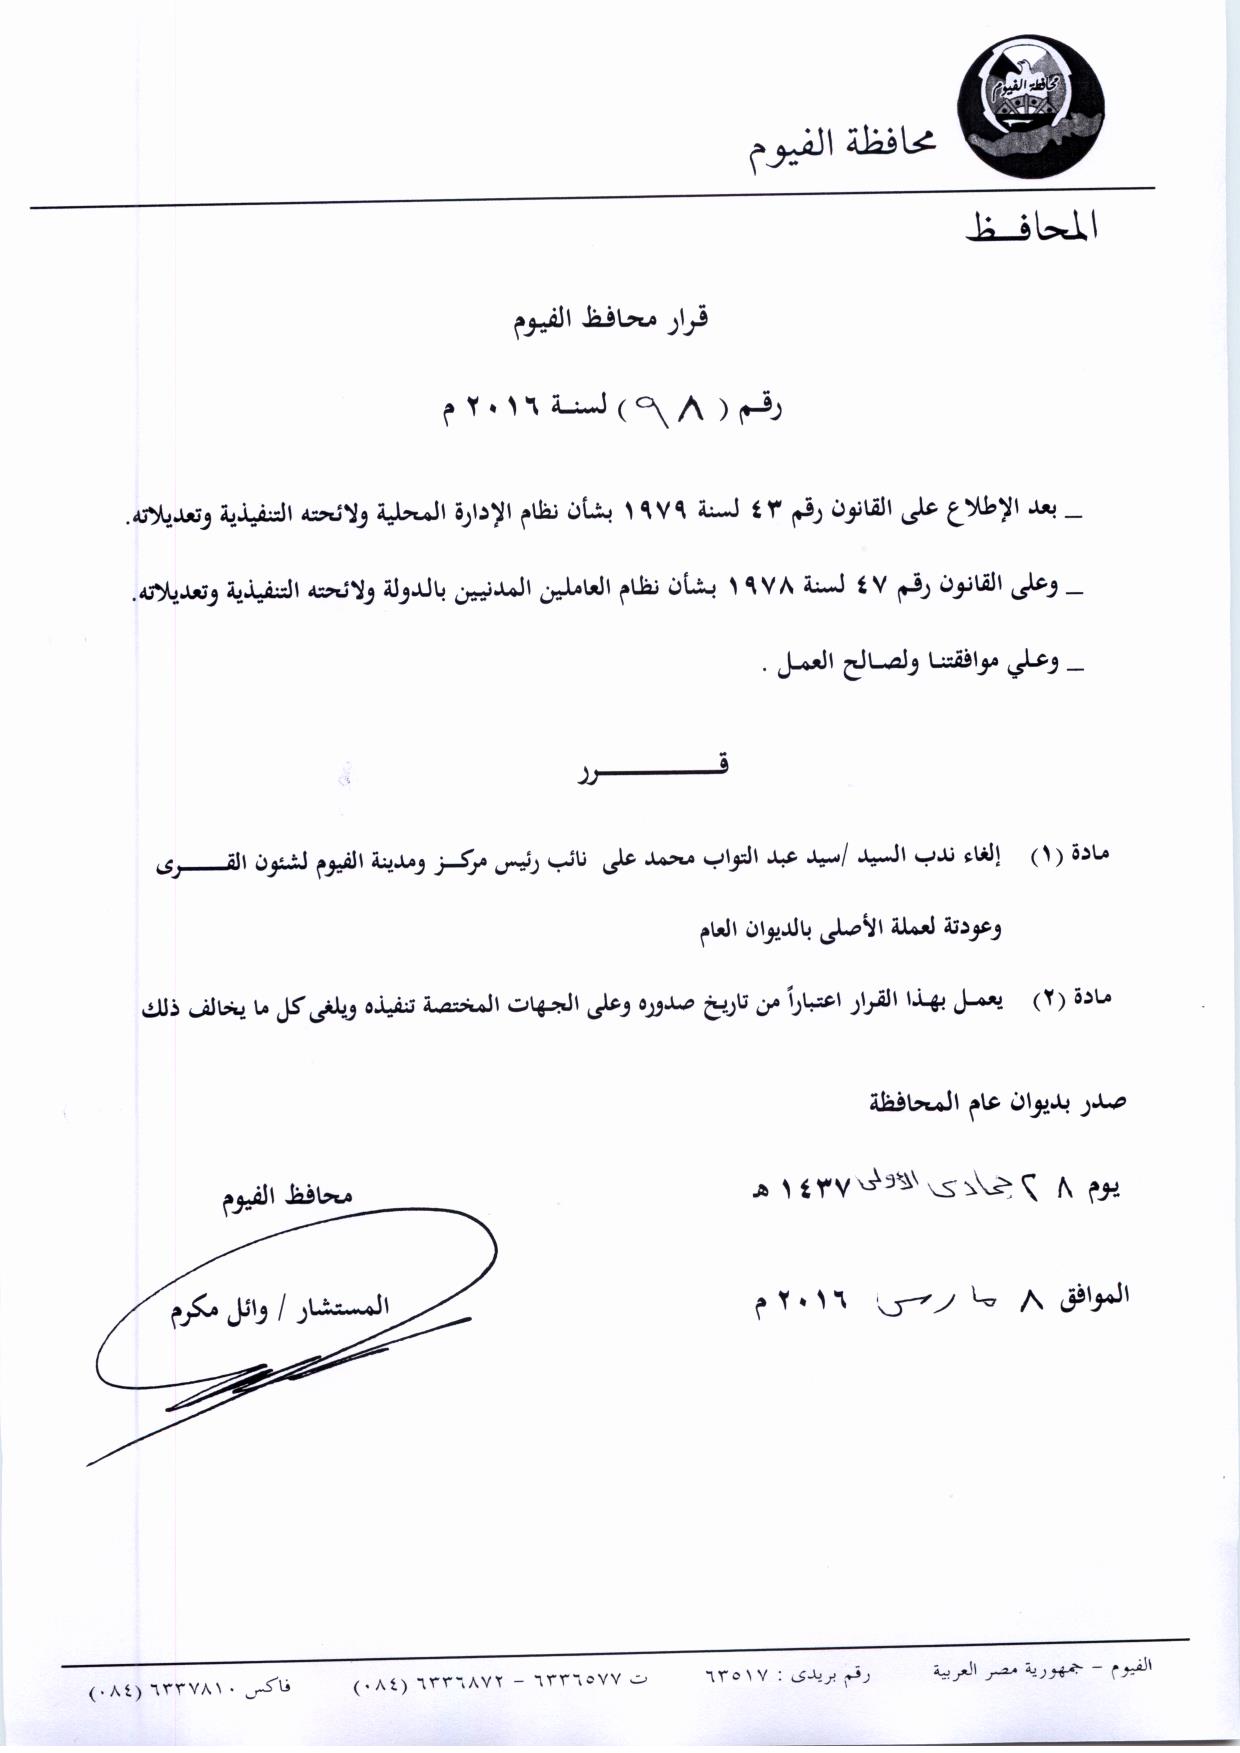 محافظة الفيوم
محافظة الفيوم
المحافـــظ
قرار محافظ الفيوم
رقم ( ٩٨ ) لسنة ٢٠١٦ م
_ بعد الإطلاع على القانون رقم ٤٣ لسنة ١٩٧٩ بشأن نظام الإدارة المحلية ولائحته التنفيذية وتعديلاته.
_ وعلى القانون رقم ٤٧ لسنة ١٩٧٨ بشأن نظام العاملين المدنيين بالدولة ولائحته التنفيذية وتعديلاته.
_ وعلي موافقتنا ولصالح العمل .
قـــــــــرر
مادة (١) إلغاء ندب السيد /سيد عبد التواب محمد على نائب رئيس مركز ومدينة الفيوم لشئون القـــــرى
وعودتة لعملة الأصلى بالديوان العام
مادة (٢) يعمل بهذا القرار اعتباراً من تاريخ صدوره وعلى الجهات المختصة تنفيذه ويلغى كل ما يخالف ذلك
صدر بديوان عام المحافظة
يوم ٢٨ جمادى الأولى ١٤٣٧ هـ
محافظ الفيوم
الموافق ٨ مارس ٢٠١٦ م
المستشار / وائل مكرم
الفيوم - جمهورية مصر العربية رقم بريدى : ٦٣٥١٧ ت ٦٣٣٦٥٧٧ - ٦٣٣٦٨٧٢ (٠٨٤) فاكس ٦٣٣٧٨١٠ (٠٨٤)